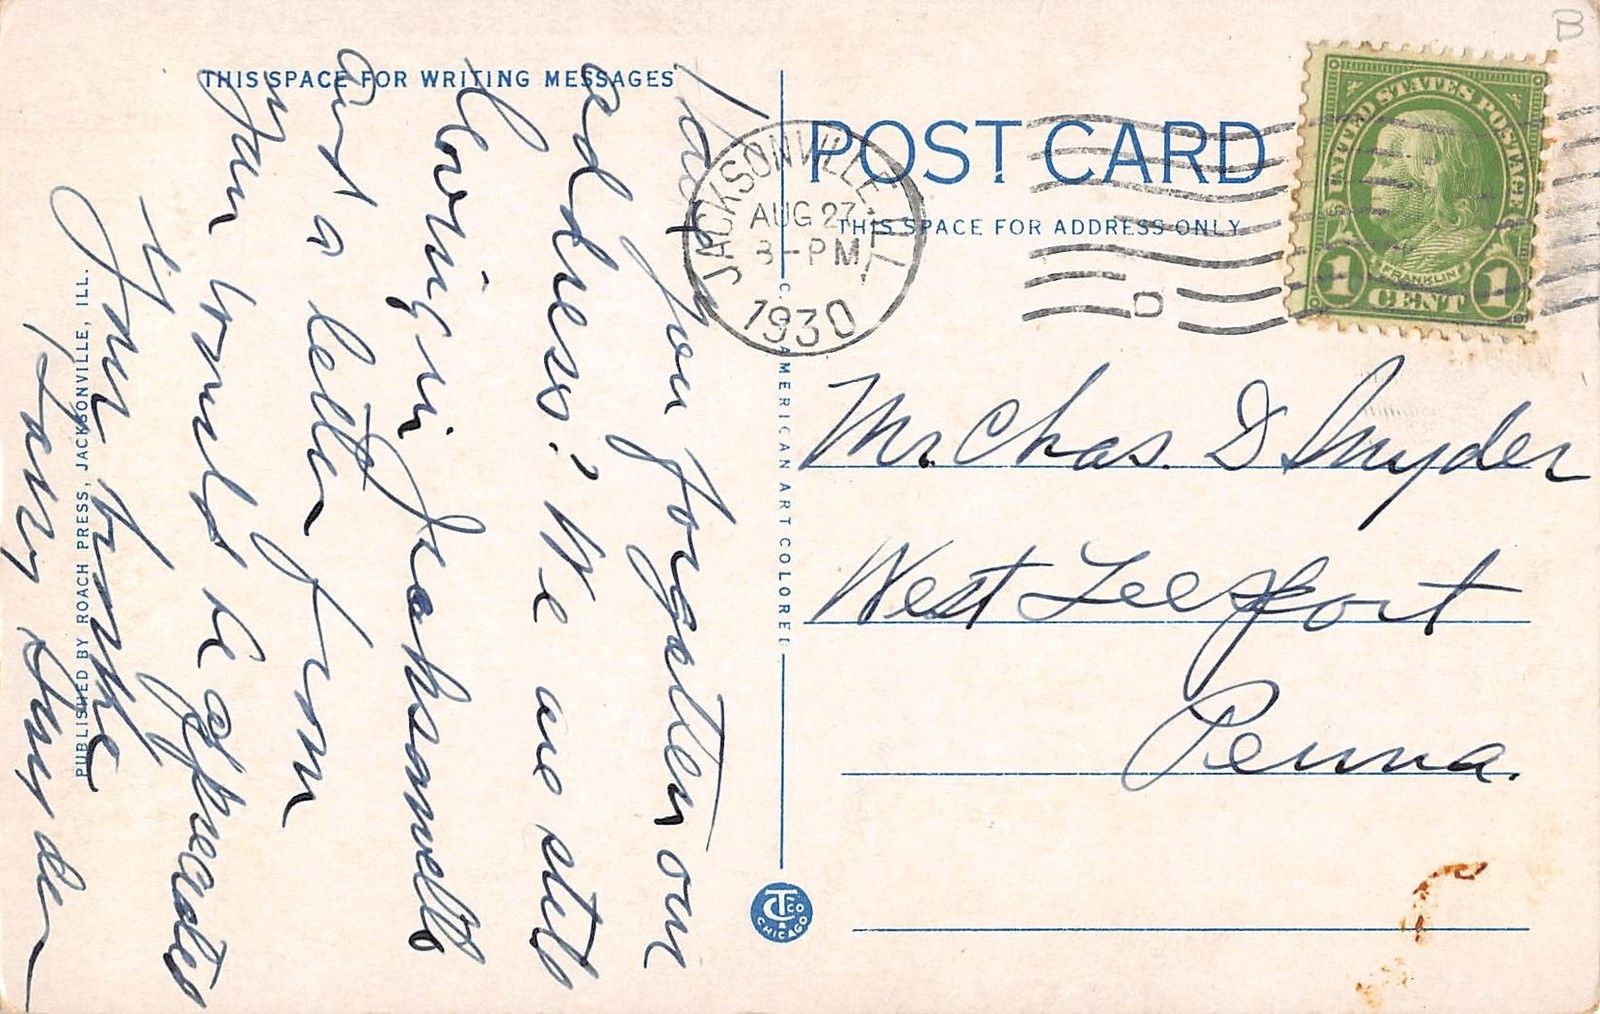 THIS SPACE FOR WRITING MESSAGES
Have you forgotten our
address? We are still
living in Jacksonville
and a letter from
you would be appreciated
Your
Harry Snyder
PUBLISHED BY ROACH PRESS, JACKSONVILLE, ILL.
C.T. AMERICAN ART COLORED
POST CARD
THIS SPACE FOR ADDRESS ONLY
JACKSONVILLE, ILL.
AUG 27
3-PM
1930
D
UNITED STATES POSTAGE
FRANKLIN
1 CENT 1
B
Mr. Chas. D Snyder
West Leesport
Penna.
CT CO
CHICAGO